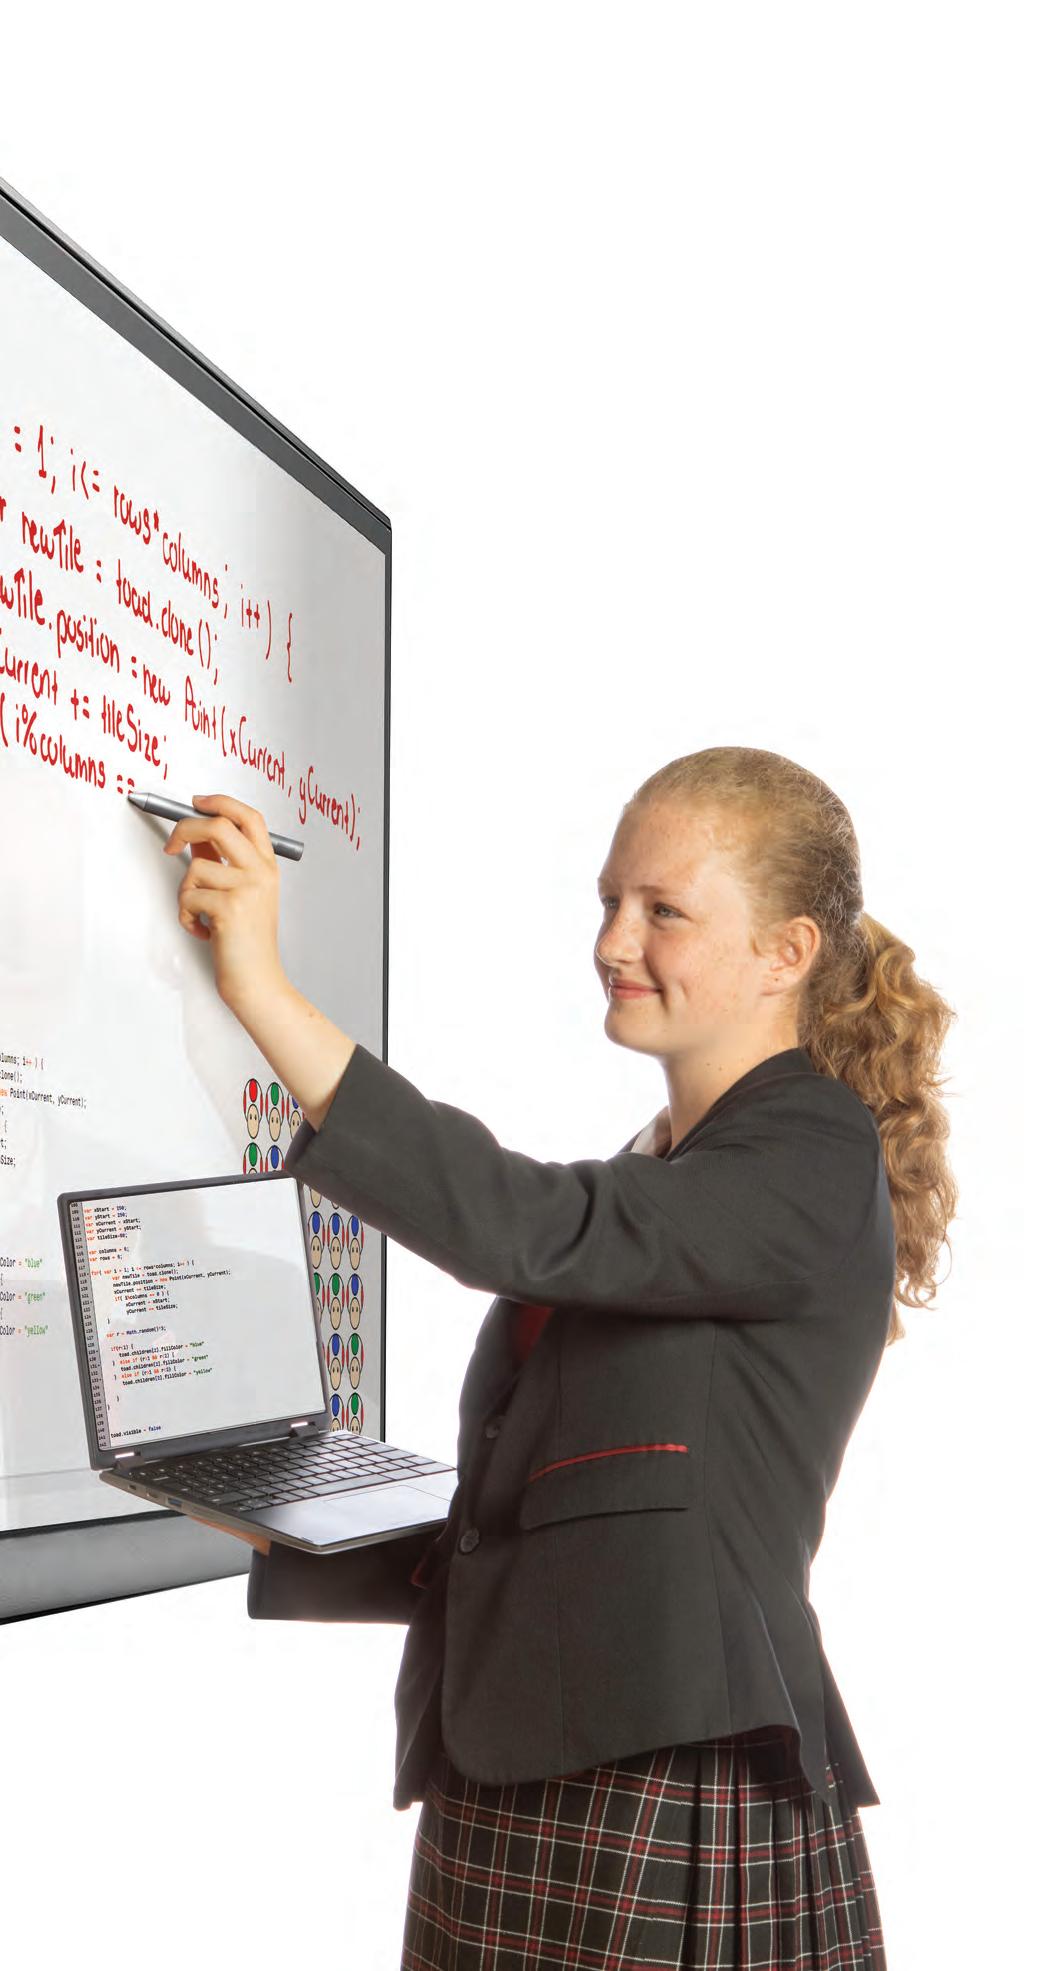 = 1; i<= rows*columns; i++) {
newTile = toad.clone();
wTile.position = new Point(xCurrent, yCurrent);
Current += tileSize;
( i%columns ==
olumns; i++ ) {
clone();
new Point(xCurrent, yCurrent);
{
t;
Size;
Color = "blue"
{
Color = "green"
{
Color = "yellow"
var xStart = 250;
var yStart = 250;
var xCurrent = xStart;
var yCurrent = yStart;
var tileSize=80;
var columns = 6;
var rows = 6;
for( var i = 1; i <= rows*columns; i++ ) {
var newTile = toad.clone();
newTile.position = new Point(xCurrent, yCurrent);
xCurrent += tileSize;
if( i%columns == 0 ) {
xCurrent = xStart;
yCurrent += tileSize;
}
var r = Math.random()*3;
if(r<1) {
toad.children[2].fillColor = "blue"
} else if (r>1 && r<2) {
toad.children[2].fillColor = "green"
} else if (r>1 && r<2) {
toad.children[2].fillColor = "yellow"
}
}
toad.visible = false